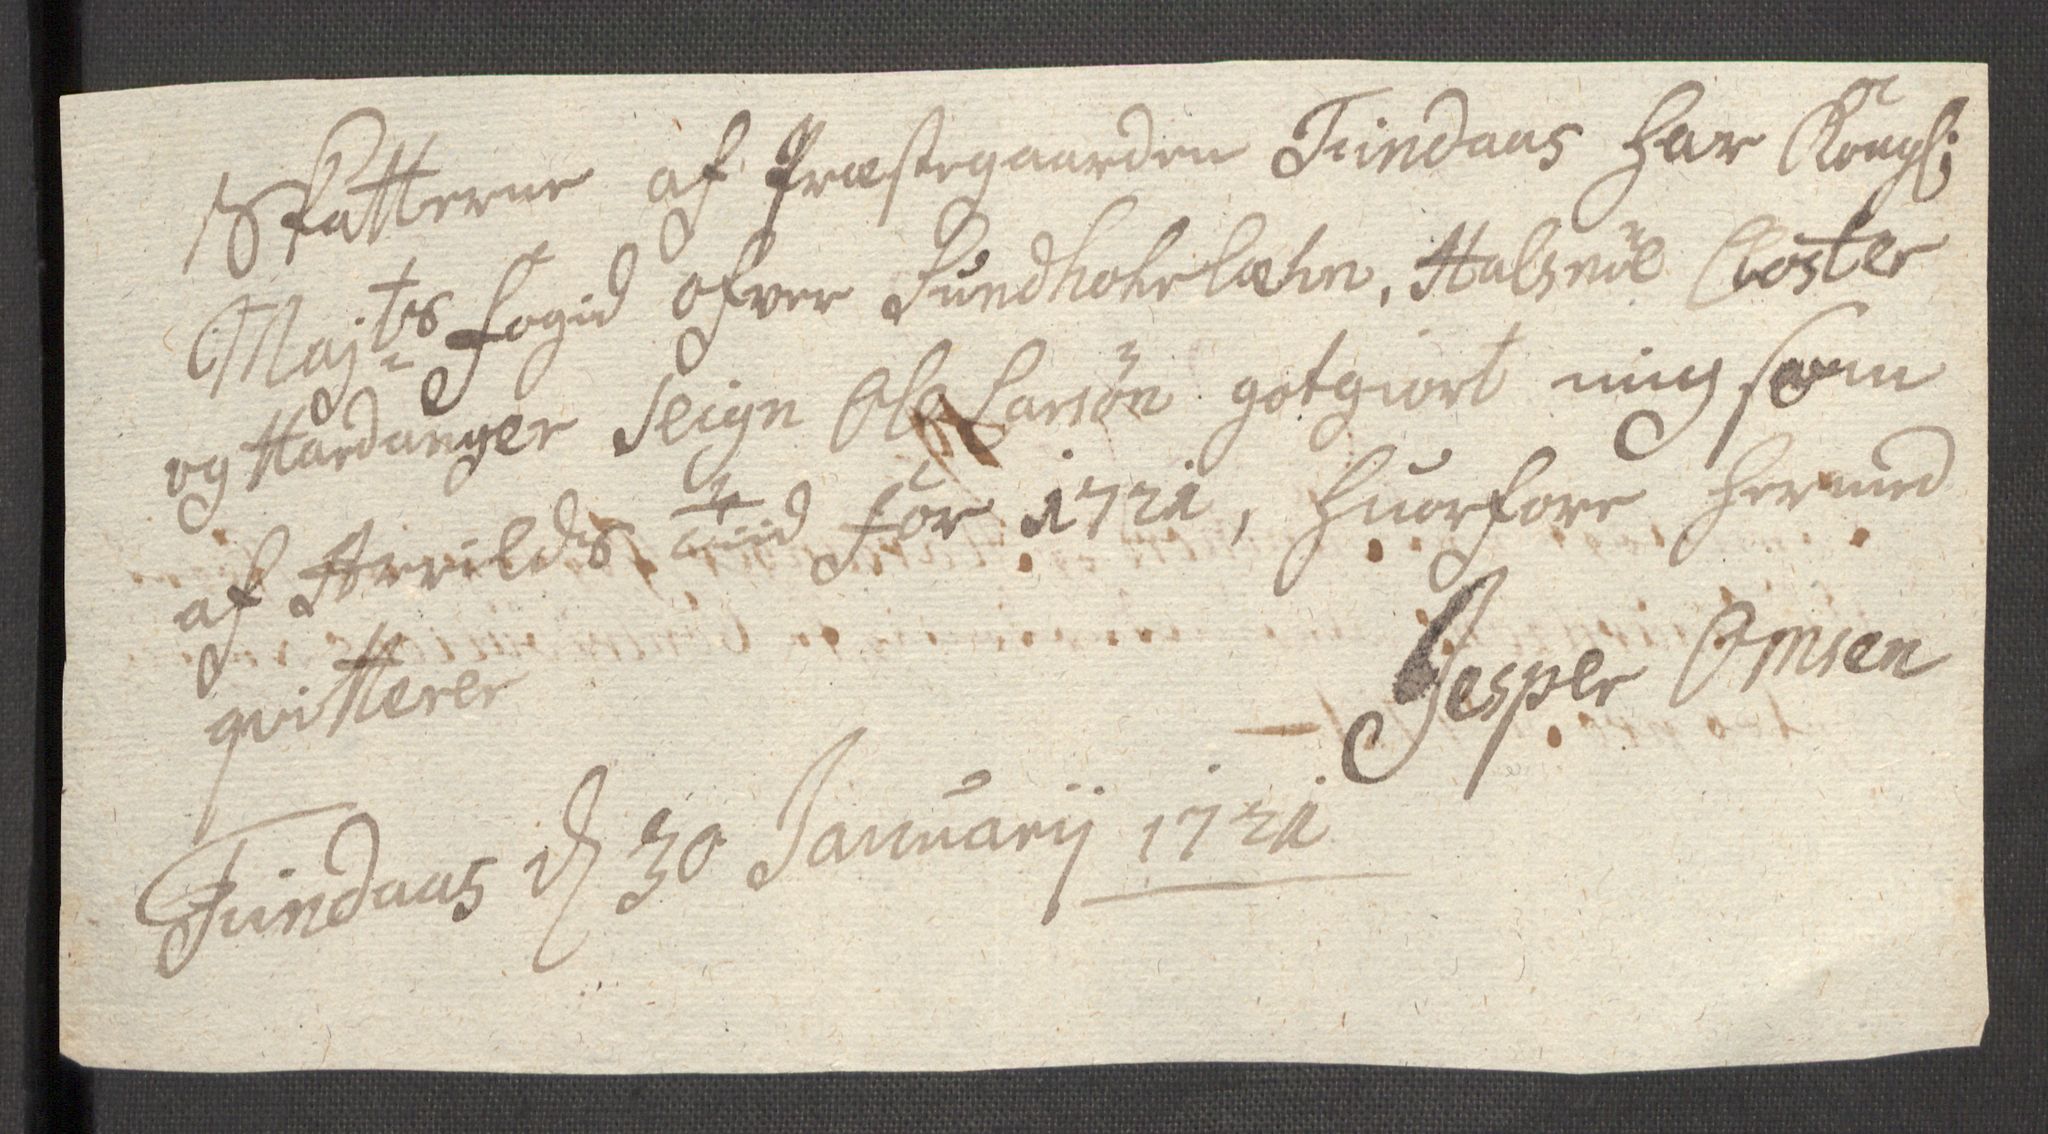 Skatterne af Præstegaarden Findaas har Kongl:
Maj:ts fogid ofver Sundhohrlæhn, Halsnöe Closter
og Hardanger Seign Ole Larsön gotgiort mig som
af Arrilds tiid for 1721, huorfore hermed
qvitterer
Jesper Omsen
Findaas d 30 Januarij 1721